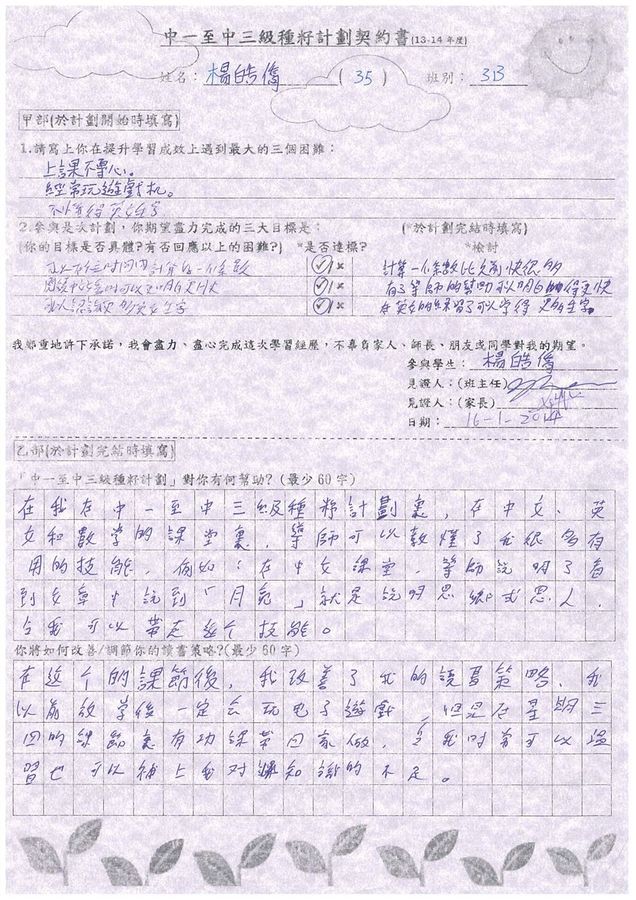 中一至中三級種籽計劃契約書(13-14 年度)
姓名：楊皓僑 (35) 班別：3B
甲部(於計劃開始時填寫)
1.請寫上你在提升學習成效上遇到最大的三個困難：
上課不專心。
經常玩遊戲机。
2.參與是次計劃，你期望盡力完成的三大目標是： (*於計劃完結時填寫)
(你的目標是否具體?有否回應以上的困難?) *是否達標? *檢討
✓/× 計算一個糸數比之前快很多
✓/× 有了導師的幫助可以明白
✓/× 在英文的練習可以學得更多生字
我鄭重地許下承諾，我會盡力、盡心完成這次學習經歷，不辜負家人、師長、朋友或同學對我的期望。
參與學生：楊皓僑
見證人：(班主任)
見證人：(家長)
日期：16-1-2014
乙部(於計劃完結時填寫)
「中一至中三級種籽計劃」對你有何幫助?(最少 60 字)
在我在中一至中三級種籽計劃裏，在中文、英
文和數學的課堂裏，導師可以教懂了我很多有
用的技能，例如：在中文課堂，導師說明了看
到文章中說到「月亮」就是說明思鄉或思人，
令我可以帶走這个技能。
你將如何改善/調節你的讀書策略?(最少 60 字)
在这个的課節後，我改善了我的讀書策略，我
以前放學後一定会玩电子遊戲，但是在星期三
四的課節裏有功課帶回家做，令我時常可以溫
習也可以補上我对課知識的不足。